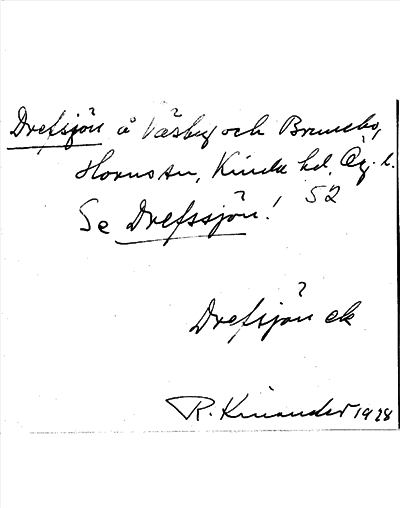 Drefsjön å Väsby och Bruncebo,
Horns sn, Kinda hd, Ög. l.
Se Drefssjön! 52
?
Drefsjön ek
R. Kinander 1928